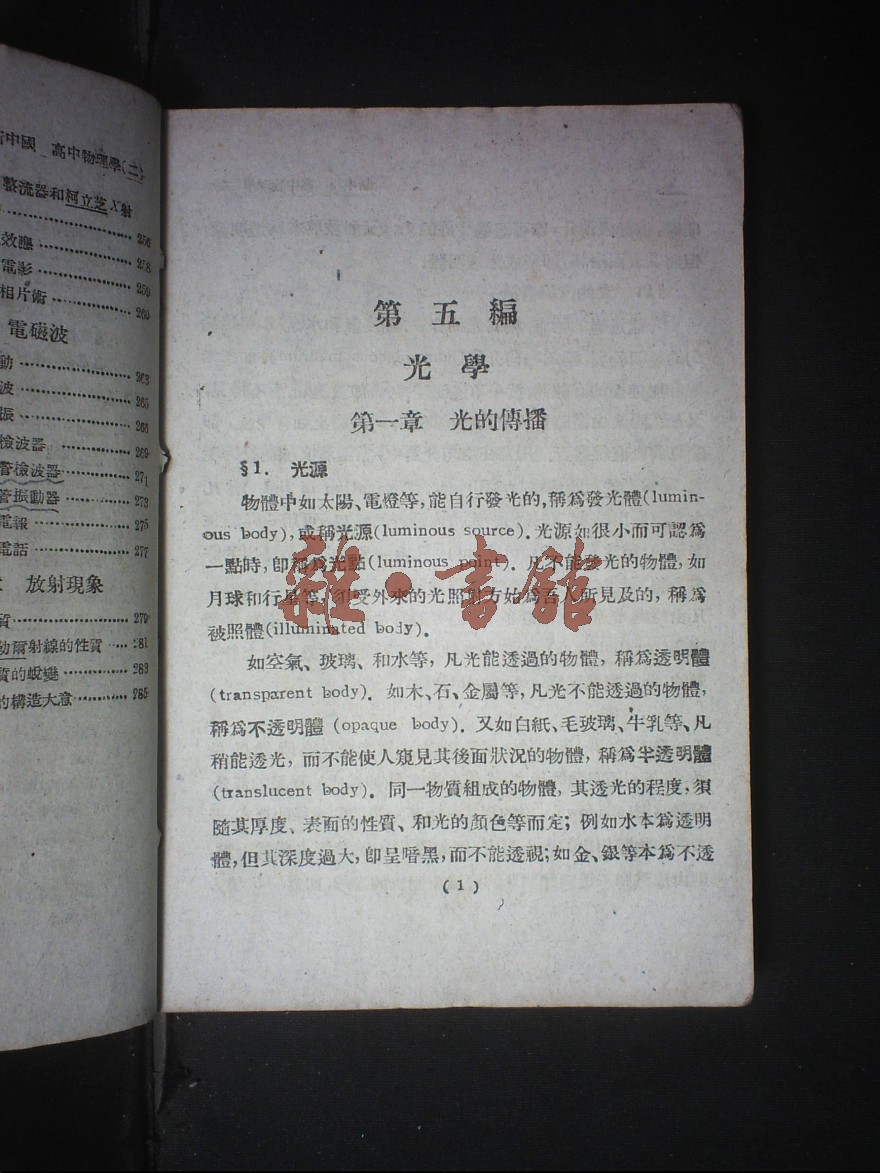 新中國 高中物理學(二)
整流器和柯立芝X射
256
效應 258
電影 259
相片術 260
電磁波
動 263
波 265
振 266
檢波器 269
管檢波器 271
管振動器 273
電報 275
電話 277
放射現象
質 279
勒爾射線的性質 281
質的蛻變 283
的構造大意 285
第五編
光學
第一章 光的傳播
§1. 光源
物體中如太陽、電燈等，能自行發光的，稱爲發光體(lumin-
ous body)，或稱光源(luminous source)．光源如很小而可認爲
一點時，卽稱爲光點(luminous point)．凡不能發光的物體，如
月球和行星等，須受外來的光照射方始爲吾人所見及的，稱爲
被照體(illuminated body)．
如空氣、玻璃、和水等，凡光能透過的物體，稱爲透明體
(transparent body)．如木、石、金屬等，凡光不能透過的物體，
稱爲不透明體 (opaque body)．又如白紙、毛玻璃、牛乳等、凡
稍能透光，而不能使人窺見其後面狀況的物體，稱爲半透明體
(translucent body)．同一物質組成的物體，其透光的程度，須
隨其厚度、表面的性質、和光的顏色等而定；例如水本爲透明
體，但其深度過大，卽呈暗黑，而不能透視；如金、銀等本爲不透
(1)
雜·書館